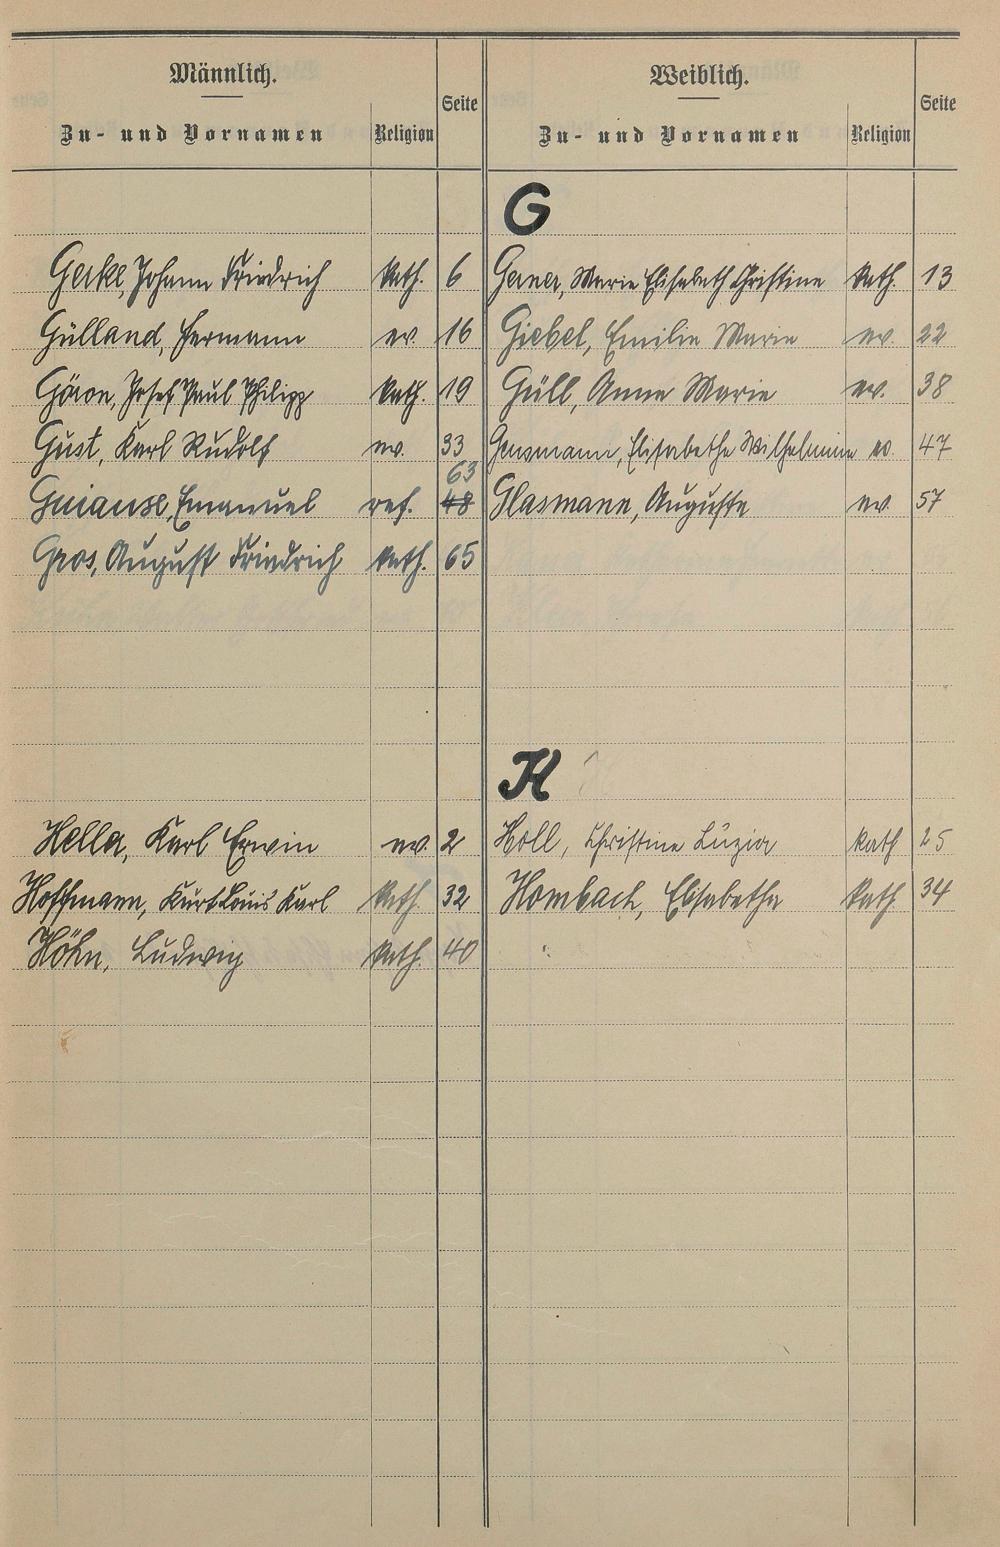 Männlich.
Zu- und Vornamen Religion Seite
Gerke, Johann Friedrich kath. 6
Gülland, Hermann ev. 16
Josef Paul Philipp kath. 19
Gust, Karl Rudolf ev. 33
63
Emanuel ref. 48
Gros, August Friedrich kath. 65
Hella, Karl Erwin ev. 2
Hoffmann, Kurt Louis Karl kath. 32
Höhn, Ludwig kath. 40
Weiblich.
Zu- und Vornamen Religion Seite
G
Gerner, Marie Elisabeth Christine kath. 13
Giebel, Emilie Marie ev. 22
Güll, Anna Marie ev. 38
Gensmann, Elisabetha Wilhelmine ev. 47
Glasmann, Auguste ev. 57
H
Holl, Christine Luzia kath 25
Hombach, Elisabetha kath 34